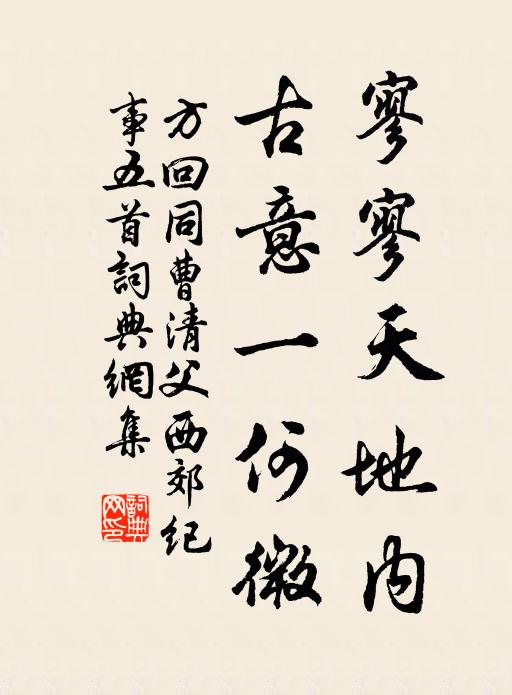 寥寥天地内
古意一何微
方回同曹清父西郊纪
事五首詞典網集
詞典
网印